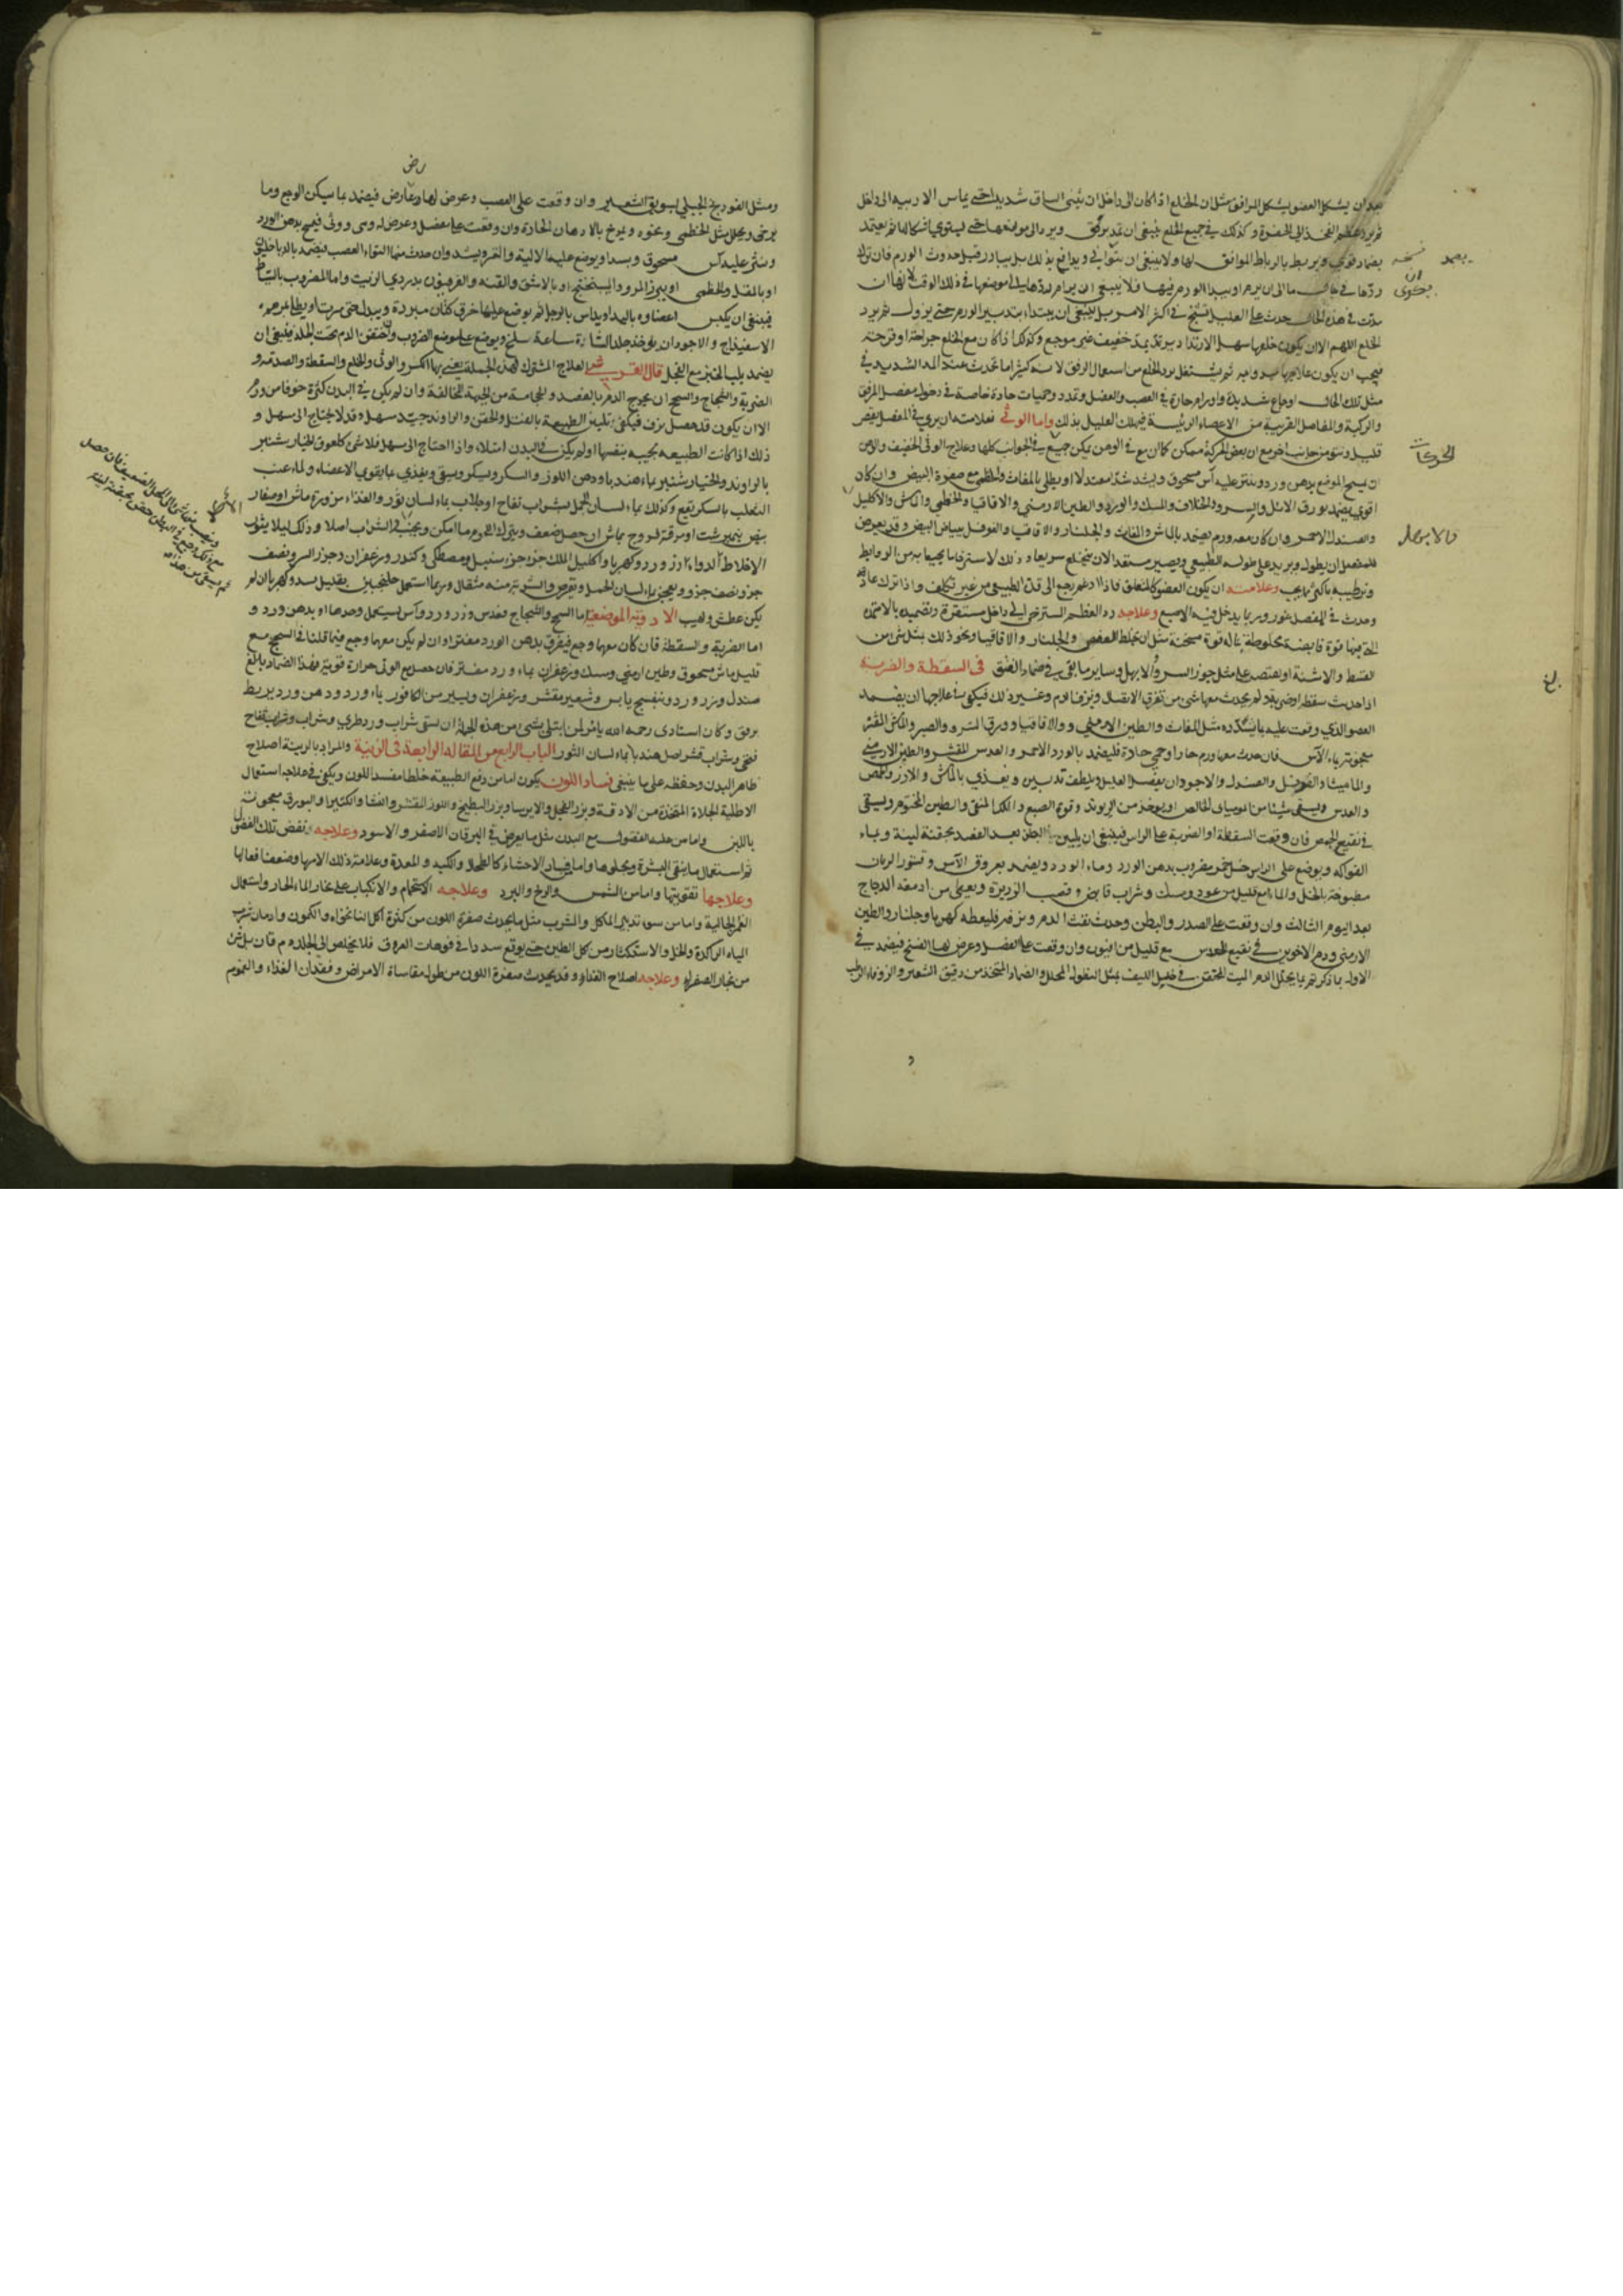 بعد ان يشكل العضو بشكل الموافق مثل ان الخلع اذا كان الى داخل ان يثنى الساق شديدا حتى يماس الاربيه الى داخل
ثم يرد عظم الفخذ الى الحفرة وكذلك في جميع الخلع ينبغي ان يمد برفق ويرد الى موضعها حتى ليستوي اشكالها ثم يضمد
بضماد قوي ويربط بالرباط الموافق لها ولا ينبغي ان يتوانى ويدافع بذلك بل يبادر قبل حدوث الورم فان ترك
ردها في حال ما الى ان يرم او يبدا الورم فيها فلا ينبغي ان يرام ردها الى موضعها في ذلك الوقت لانها ان
مدت في هذه الحال حدث على العليل تشنج في اكثر الامر بل ينبغي ان يبتداء بتدبير الورم حتى يزول ثم يرد
الخلع اللهم الا ان يكون خلعها سهل الارتداد يرتد بمد خفيف غير موجع وكذلك اذا كان مع الخلع جراحة او قرحة
فيجب ان يكون علاجها ثم يشتغل برد الخلع من استعمال الرفق لانه كثيرا ما تحدث عند المد الشديد في
مثل تلك الحال اوجاع شديدة واورام حارة في العصب والعضل وتمدد وحميات حادة خاصة في دخول مفصل المرفق
والركبة والمفاصل القريبة من الاعضاء الرئيسة فيهلك العليل بذلك واما الوثي فعلامته ان يرى في المفصل بعض
قليل ونتو من جانب اخر مع ان بعض الحركة ممكن كان مع في الوهن يمكن جميع في الجوانب كلها وعلاج الوثي الخفيف والوهن
ان يمسح الموضع بدهن ورد وينثر عليه آس مسحوق ويشد شدا معتدلا او يطلى بالمغاث والخطمي مع صفرة البيض وان كان
اقوى يضمد بورق الاثل والسرو والخلاف والسك والورد والطين الارمني والاقاقيا والخطمي والماش والاكليل
والصندل الاحمر وان كان معه ورم يضمد بالماش والمغاث والجلنار والاقاقيا والفوفل ببياض البيض وقد يعرض
للمفصل ان يطول ويزيد على طوله الطبيعي ويصير مستعدا لان ينخلع سريعا وذلك لاسترخاء ما يحيط به من الروابط
وترطيبه باكثر ما يجب وعلامته ان يكون العضو كالمتعلق فاذا ادغم رجع الى قدره الطبيعي من غير تكلف واذا ترك عاد
وحدث في المفصل غور وربما يدخل فيه الاصبع وعلاجه رد العظم المسترخي الى داخل مستقره وتضميده بالاضمدة
التي فيها قوة قابضة مخلوطة بما له قوة مسخنة مثل ان يخلط العفص والجلنار والاقاقيا ونحو ذلك بشئ من
القسط والاشنة او يقتصد على مثل جوز السرو والابهل وساير ما بقي في ضماد الفتق في السقطة والضربة
اذا حدث سقطة او ضربة ولم يحدث معها شئ من تفرق الاتصال ونزف الدم وغير ذلك فيكفي في علاجها ان يضمد
العضو الذي وقعت عليه بما يشدده مثل المغاث والطين الارمني والاقاقيا وورق السرو والصبر والماش المقشر
معجونة بماء الآس فان حدث معها ورم حار او حمى حادة فليضمد بالورد الاحمر والعدس المقشر والطين الارمني
والماميثا والفوفل والصندل والاجود ان يفصد العليل ويلطف تدبيره ويغذي بالماش والارز والحمص
والعدس ويسقى شيئا من الموميائي الخالص او يوخذ من الريوند وقوة الصبغ واللك المنقى والطين المختوم ويسقى
في نقيع الحمص فان وقعت السقطة او الضربة على الراس فينبغي ان يلين البطن بعد الفصد بحقنة لينة وبماء
الفواكه ويوضع على الراس خل خمر مضروب بدهن الورد وماء الورد ويضمد بعروق الآس وقشور الرمان
مطبوخة بالخل والماء مع قليل من عود وسك وشراب قابض وقصب الذريرة ويعطى من ادمغة الدجاج
بعد اليوم الثالث وان وقعت على الصدر والبطن وحدث نفث الدم ونزفه فليعطه كهربا وجلنار والطين
الارمني ودم الاخوين في نقيع العدس مع قليل من افيون وان وقعت على العضل وعرض لها الفسخ فيضمد في
الاول بما ذكر ثم بما يحلل الدم الميت المحتقن في خلل الليف بمثل النطول المحلل والضماد المتخذ من دقيق الشعير والزوفاء الرطب
نسخه
الحركات
والابهل
ومثل الفودنج الجبلي بسويق الشعير وان وقعت على العصب وعرض لها وعارض فيضمد بما سيكن الوجع وما
يرخى ويحلل مثل الخطمي ونحوه ويمرخ بالادهان الحارة وان وقعت على مفصل وعرض له وهن ووثي فيمسح بدهن الورد
وينثر عليه آس مسحوق ويشد او يوضع عليه الالية والتمر ويشد وان حدث منها التواء العصب فيضمد بالدياخليون
او بالمقل والخطمي او ببزر المرو والميبختج او بالاشق والقنه والفربيون بدردي الزيت واما المضروب بالسياط
فينبغي ان يكبس اعضاوه باليد او يداس بالرجل ثم يوضع عليها خرق كتان مبردة ويبدل حتى مرت او يطلى بمرهم
الاسفيذاج والاجود ان يوخذ جلد الشاة ساعة سلخ ويوضع على موضع الضروب وان احتقن الدم تحت الجلد فينبغي ان
يضمد بلباب الخبز مع الفجل قال القرشي العلاج المشترك لهذه الجملة يعني بها الكسر والوثى والخلع والسقطة والصدمة و
الضربة والشجاج والسحج ان يخرج الدم بالفصد والحجامة من الجهة المخالفة وان لم يكن في البدن كثرة خوفا من ورم
الا ان يكون قد حصل نزف فيكفى تليين الطبيعة بالفتل والحقن والراوند جيد سهل وقد لا يحتاج الى سهل و
ذلك اذا كانت الطبيعة مجيبة بنفسها او لم يكن في البدن امتلاء واذا احتاج الى سهل فلا شئ كلعوق الخيار شنبر
بالراوند والخيار شنبر بماء هندبا ودهن اللوز والسكر وسكر ويسقى ويغذى بما يقوي الاعضاء ولماء عنب
الثعلب بالسكر يقع وكذلك بماء لسان الحمل بشراب تفاح او جلاب بماء لسان ثور والغذاء مزورة ماش او صفار
بيض نيمبرشت او مرقة فروج بماش ان حصل ضعف ويترك اللحوم ما امكن ويجتنب الشراب اصلا وذلك ليلا يثور
الاخلاط الدواء ورد وكهربا واكليل الملك جزء جزء سنبل ومصطكى وكندر وزعفران وجوز السرو نصف
جزء نصف جزء ويعجن بماء لسان الحمل ويقرص والشربة منه مثقال وربما استعمل جلنجبين بقليل سد وكهربا ان لم
يكن عطش ولهيب الادوية الموضعية اما السحج والشجاج فعدس وزر ورد وآس يستعمل وحدها او بدهن ورد و
اما الضربة والسقطة فان كان معها وجع فيغرق بدهن الورد مفتر وان لم يكن معها وجع فيما قلنا في السحج مع
قليل ماش مسحوق وطين ارمني وسك وزعفران بماء ورد مفتر فان حصل مع الوثي حرارة قوية فهذا الضماد بالغ
صندل وزر ورد وبنفسج يابس وشعير مقشر وزعفران ويسير من الكافور بماء ورد ودهن ورد يربط
برفق وكان استادى رحمه الله يامر لمن ابتلى بشئ من هذه الجملة ان يسقى شراب ورد طري وشراب وشراب تفاح
فتحى وشراب قشر اصل هندبا بماء لسان الثور الباب الرابع من المقالة الرابعة في الزينة والمراد بالزينة اصلاح
ظاهر البدن وحفظه على ما ينبغى فساد اللون يكون اما من دفع الطبيعة خلطا مفسدا للون ويكفى في علاجه استعمال
الاطلية الجلاءة المتخذة من الادقة وبزر الفجل والايرسا وبزر البطيخ واللوز المقشر والنشا والكثيرا والبورق معجونة
باللبن واما من غلبة الفضول مع البدن مثل ما يعرض في اليرقان الاصفر والاسود وعلاجه نفض تلك الفضول
ثم استعمال ما ينقى البشرة ويجلوها واما فساد الاحشاء كالطحال والكبد والمعدة وعلامة ذلك الامها وضعف افعالها
وعلاجها تقويتها واما من الشمس والريح والبرد وعلاجه الاستحمام والانكباب على بخار الماء الحار واستعمال
الغمر الجالية واما من سوء تدبير الماكل والمشرب مثل ما يحدث صفرة اللون من كثرة اكل النانخواه والكمون وادمان شرب
المياه الراكدة والخل والاستكثار من اكل الطين حتى يوقع سددا في فوهات العروق فلا يخلص الى الجلد دم قان بل شئ
من بخار الصفراء وعلاجه اصلاح الغذاء وقد يحدث صفرة اللون من طول مقاساة الامراض وفقدان الغذاء والهموم